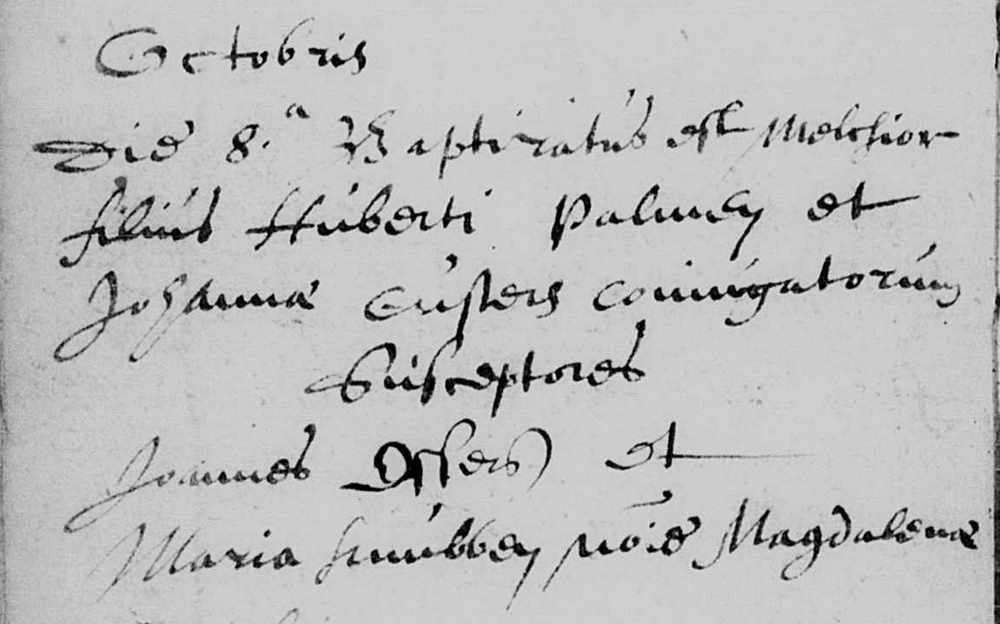 Octobris
Die 8.a Baptizatus est Melchior
filius Huberti Palmen et
Johannæ Custers coniugatorum
Susceptores
Joannes Offers et
Maria Snubben noie Magdalenæ